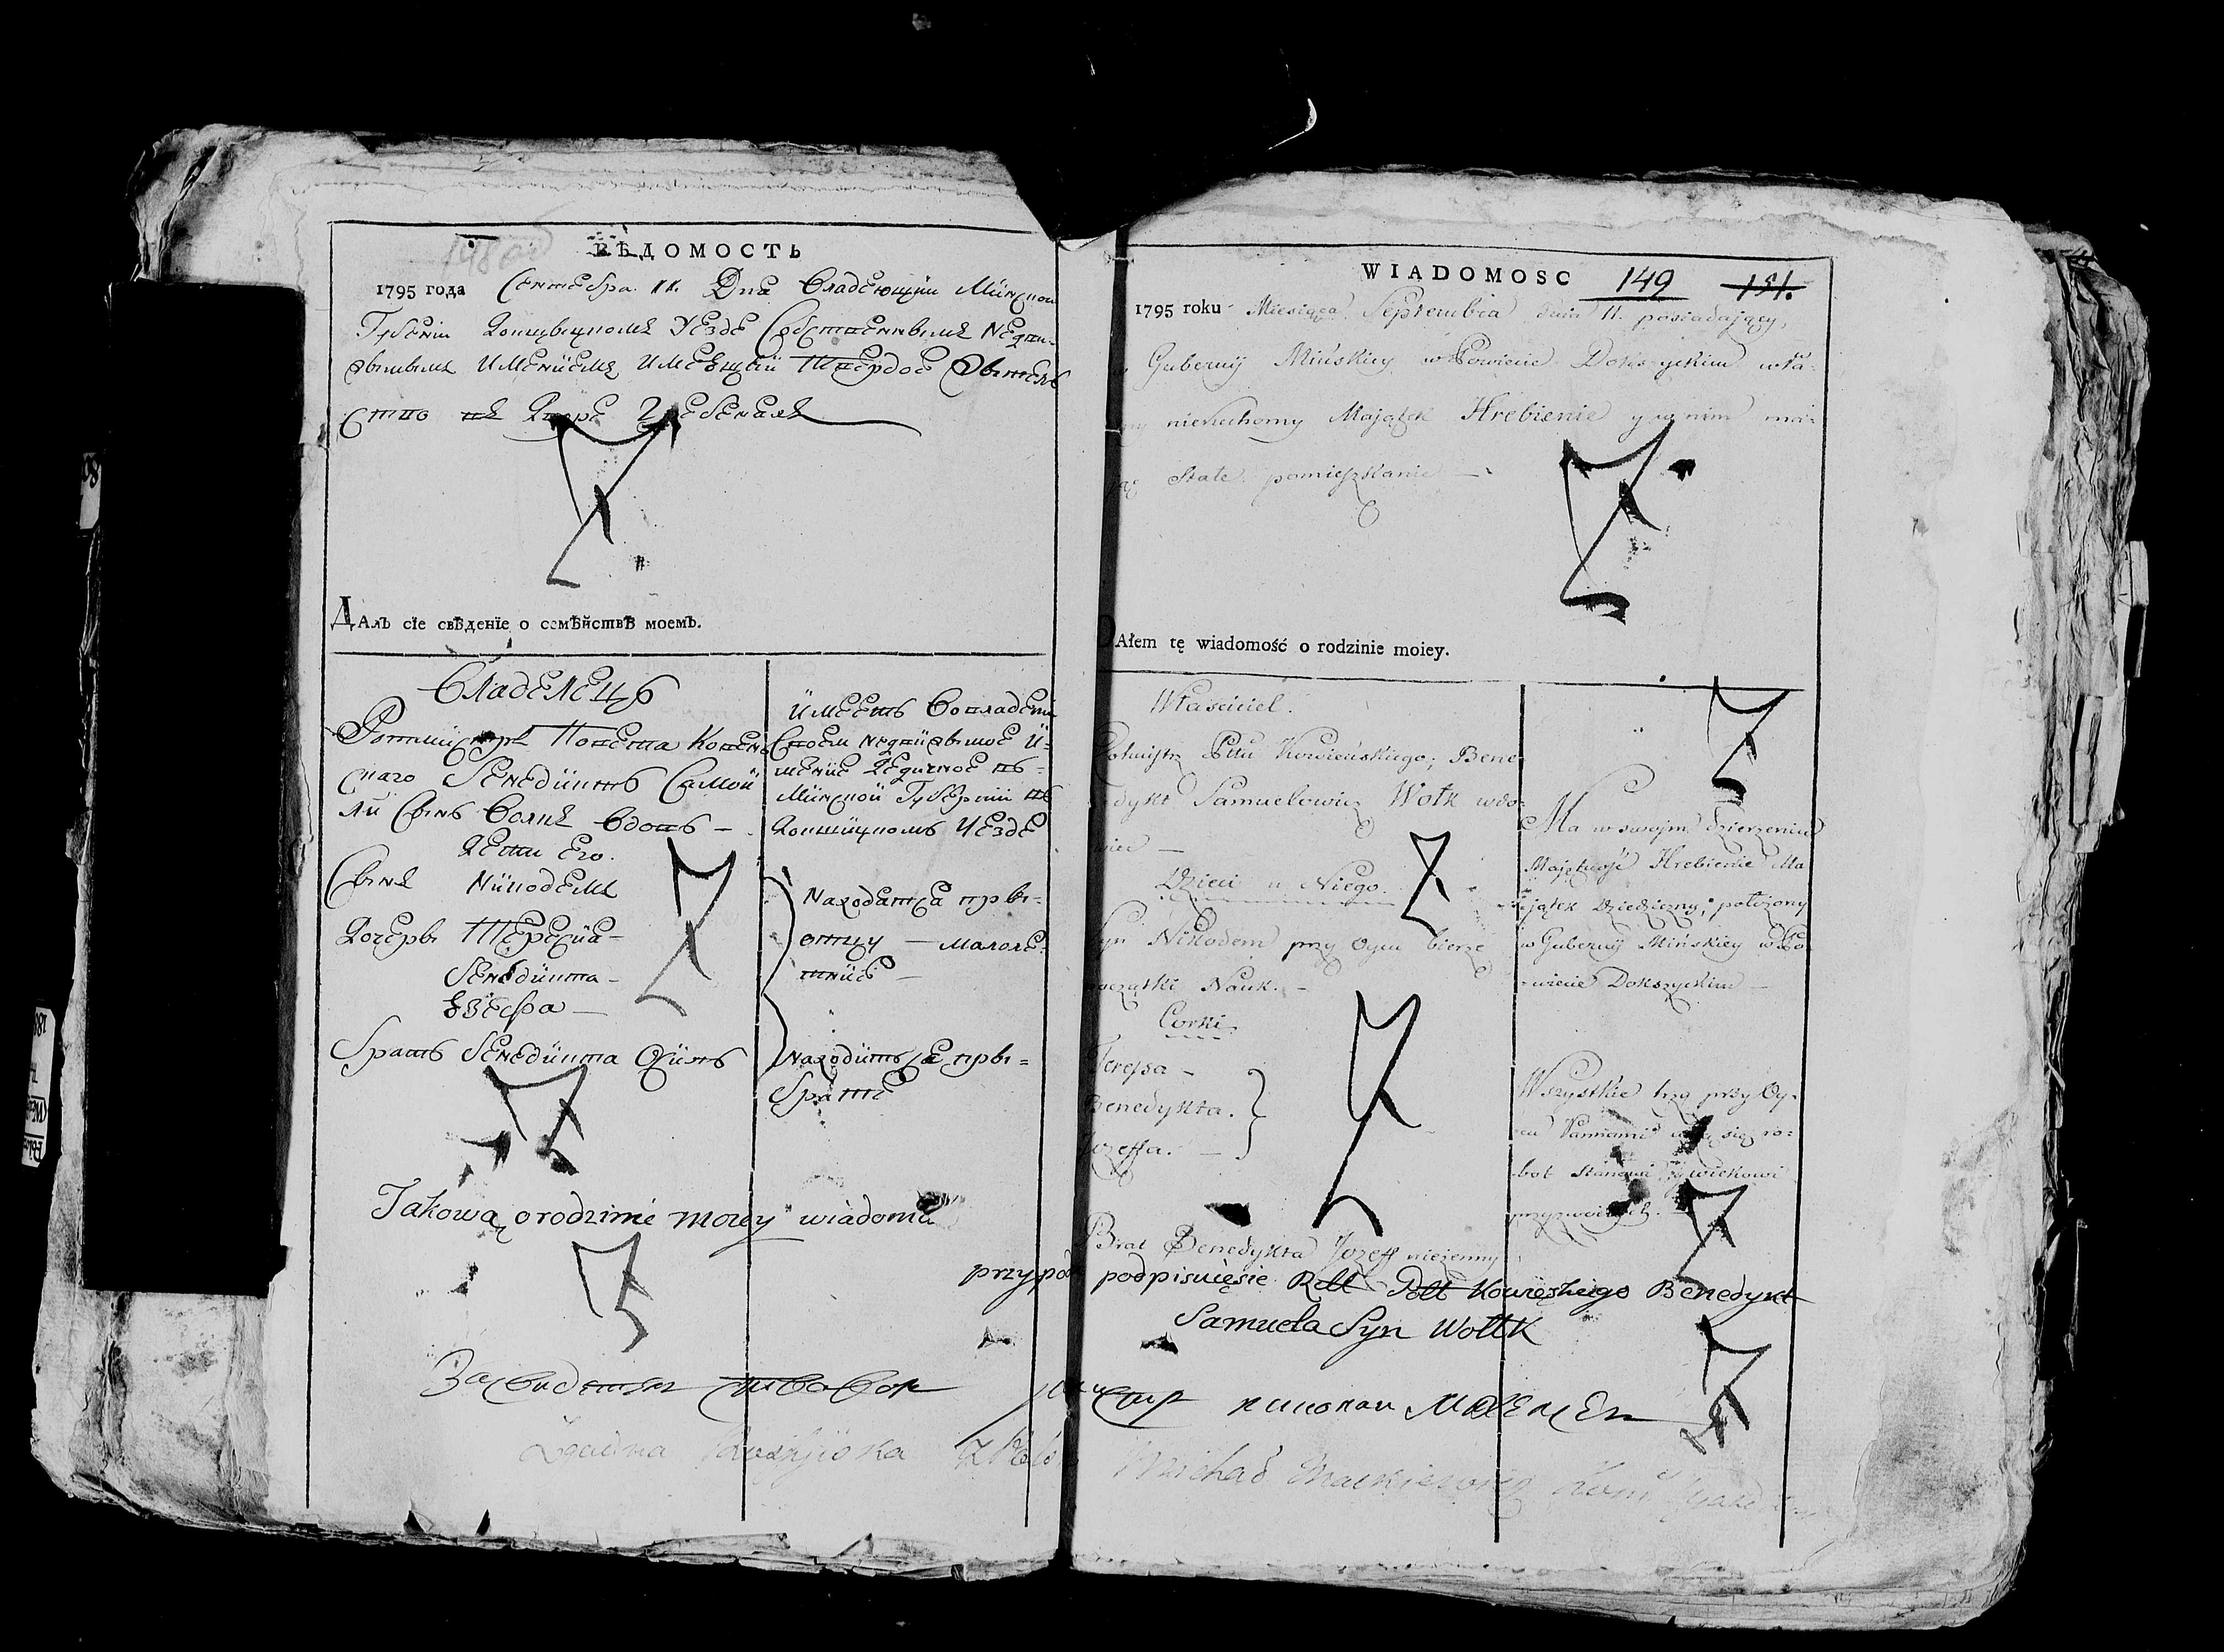 148 об
ВѢДОМОСТЬ
1795 года Сентебра 11. Дня Владеющий Минской
Губеніи Докщицкомъ Уезде Собственнымъ недви-
жымымъ Именіемъ Имеещый Твердое Жытель
ство въ Дворе Гребеняхъ
ДАлъ сіе свѣденіе о семѣйствѣ моемъ.
Владелецъ
Ротмистръ Повета Ковен
скаго Бенедиктъ Самой
ли Сынъ Волкъ вдовъ –
Дети Его.
Сынъ Никодемъ
Дочеры Тересиа –
Бенедикта –
Езефа –
Братъ Бенедикта Юзифъ
Имеетъ Вовладеніи
Своем недвижымое И-
мение Дедичное въ-
Минской Губерніи въ
Докшицкомъ Уезде
Находятся пры-
отцу – малоле-
тніе –
Находитъся пры-
Брате
Takową o rodzinie moiey wiadomość
За Свидетельствавал
WIADOMOSC 149 151.
1795 roku Miesiąca Septembra dnia 11. posiadaiący,
w Guberuij Mińskiey w Powiecie Dokszyckim wła-
sny nieruchomy Maiątek Hrebienie y w nim ma-
jąc Stałe pomieszkanie –
DAłem tę wiadomość o rodzinie moiey.
Własciciel.
Rotmistrz Pttu Kowieńskiego, Bene-
dykt Samuelowicz Wołk wdo-
wiec –
Dzieci u Niego.
Syn Nikodem przy Oycu bierze
początki Nauk. –
Corki
Teressa –
Benedykta.
Jozeffa. –
Brat Benedykta Jozeff nieżenny
Ma w swojm dzierżeniu
Maiętność Hrebienie Ma
jątek Dziedziczny, położony
w Guberuij Mińskiey w Po-
wiecie Dokszyckim –
Wszystkie trzy przy Oy-
cu Pannami uczą się ro-
bot Stanowi y wiekowi
przyzwoitych.
podpisuięsie Rott Pott Kowięskiego Benedykt
Samuela Syn Wołłk
Michał Mackiewicz